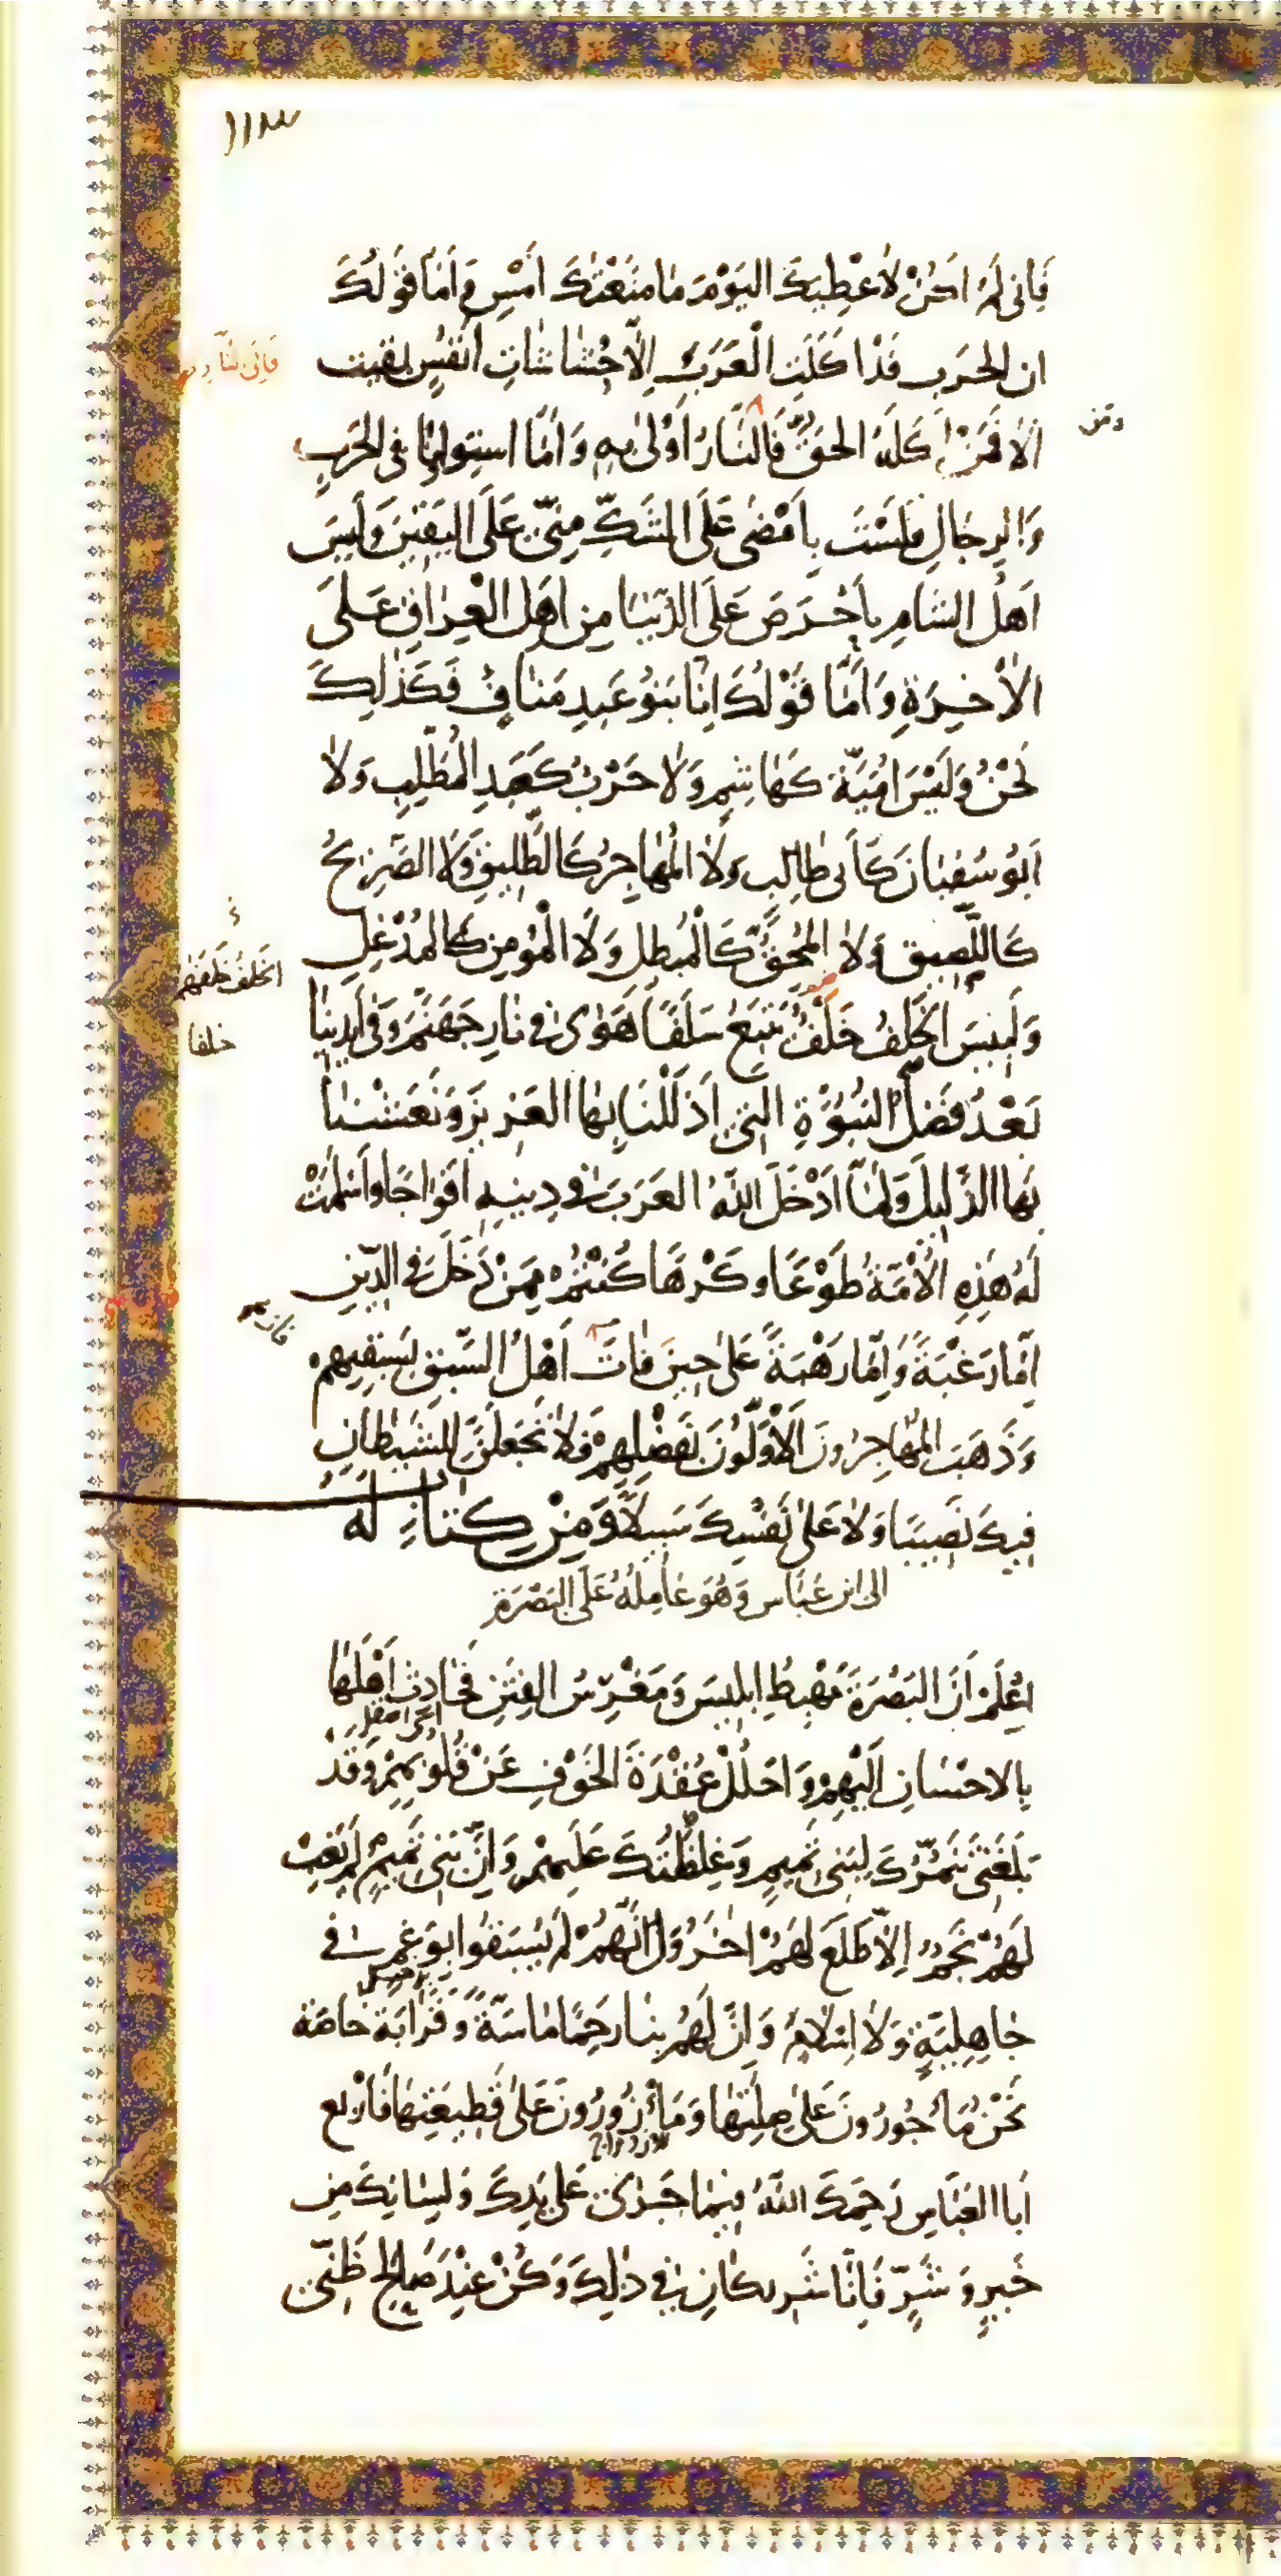 ١١٣
فَاِنّي لَمْ اَكُنْ لاُعْطِيَكَ اليَوْمَ مٰا مَنَعْتُكَ اَمْسِ وَ اَمّا قَوْلُكَ
ان الحَرب قَدْ اَكَلَتِ الْعَرَبَ اِلاّ حُشٰاشٰاتِ اَنفُسٍ بقيت
اَلاٰ فَمَنْ اَكَلَهُ الحَقُّ فَالنَّارُ اَوْلىٰ بِهِ وَ اَمّا استِوٰاؤنا فى الحَربِ
وَ الرِجٰالِ فلَسْتَ بِاَمْضىٰ عَلَى الشَكِّ مِنّى عَلَى اليَقينَ وَ لَيسَ
اَهْلُ الشٰامِ بِاَحْرَصَ عَلَى الدّنيٰا مِن اهَلِ الْعِرٰاقِ عَلىَ
الاٰخِرَةِ وَ اَمّا قَوْلُكَ اِنّٰا بَنوُ عَبدِ مَنٰافٍ فَكَذٰلِكَ
نَحْنُ وَ لَيْسَ اُمَيَّة كَهٰاشِمٍ وَلاٰ حَرْبٌ كَعَبدِ المُطَّلِبِ وَلاٰ
اَبُو سُفيٰانَ كَاَبى طٰالِبٍ وَلاٰ المُهٰاجِرُ كَالطَّليقِ وَلاَ الصَّرِيحُ
كَاللَّصيقِ وَلاٰ المُحِقُّ كَالْمُبطِلِ وَ لاَ الْمُؤمِن كالمُدْغِلِ
وَلَبِئسَ الخَلفُ خَلْفٌ يَتبَعُ سَلَفًا هَوىٰ فى نٰارِ جَهَنَّمَ وَ فى اَيدينٰا
بَعْدُ فَضلُ النُبُوَّةِ التي اَذلَلْنَا بِهَا العَزيزَ وَ نَعَشْنٰا
بِهَا الذَّليلَ وَ لمّا اَدْخَلَ اللّهُ العَرَبَ فى دينِهِ اَفوٰاجًا وَ اَسْلمَتْ
لَهُ هٰذِهِ الاُمَّةُ طَوْعًا و كَرْهًا كُنْتُمْ مِمَّنْ دَخَلَ فى الدّينِ
اِمّا رَغْبَةً وَ اِمّا رَهْبَةً عَلىٰ حينَ فٰازَ اَهْلُ السَّبقِ بسَبقِهِمْ
وَ ذَهَبَ المُهٰاجِرُونَ الاَوَّلُونَ بفَضْلِهِمْ فَلاٰ تَجعَلَنَّ لِلشَيطٰانِ
فيكَ نَصيبًا وَلاٰ عَلىٰ نَفسِكَ سَبيلاً وَ مِنْ كِتٰابٍ لَه
الى ابن عَبّاس وَ هُوَ عٰامِلُهُ عَلَى البَصْرَةِ
اِعْلَمْ اَنَّ البَصْرَةَ مَهْبِطُ ابليسَ وَ مَغْرِسُ الفِتَنِ فَحٰادِث اَهْلَهٰا
بِالاحسٰانِ اِلَيْهِمْ وَ احْلُلْ عُقْدَةَ الخَوْفِ عَنْ قُلُوبِهِمْ وَ قَدْ
بَلَغَنى تَنَمُّرُكَ لِبَنى تَميمٍ وَ غِلظَتُكَ عَلَيهِمْ وَ اِنَّ بَنى تَميمٍ لَمْ يَغِبْ
لَهُمْ نَجمٌ اِلاّ طَلَعَ لَهُمْ اٰخَرُ وَ اَنّهُمْ لَمْ يُسْبَقُوا بِوَغْمٍ فى
جٰاهِلِيَّةٍ وَلاٰ اِسْلامٍ وَ اِنَّ لَهُم بِنٰا رَحِمًا مٰاسَّةً وَ قَرٰابَةً خاصّة
نَحْنُ مَأجُورُونَ عَلىٰ صِلَتِهٰا وَ مَأزُورُونَ عَلىٰ قَطيعَتِهٰا فَارْبَع
اَبَا العَبّاسِ رَحِمَكَ اللّهُ فيمٰا جَرىٰ عَلىٰ يَدِكَ وَ لِسٰانِكَ مِن
خَيرٍ وَ شَرٍّ فَاِنّا شَريكٰانِ فى ذٰلِكَ وَ كُنْ عِنْدَ صٰالِحِ ظَنّى
فَاِلَى النّار
و من
خلفا